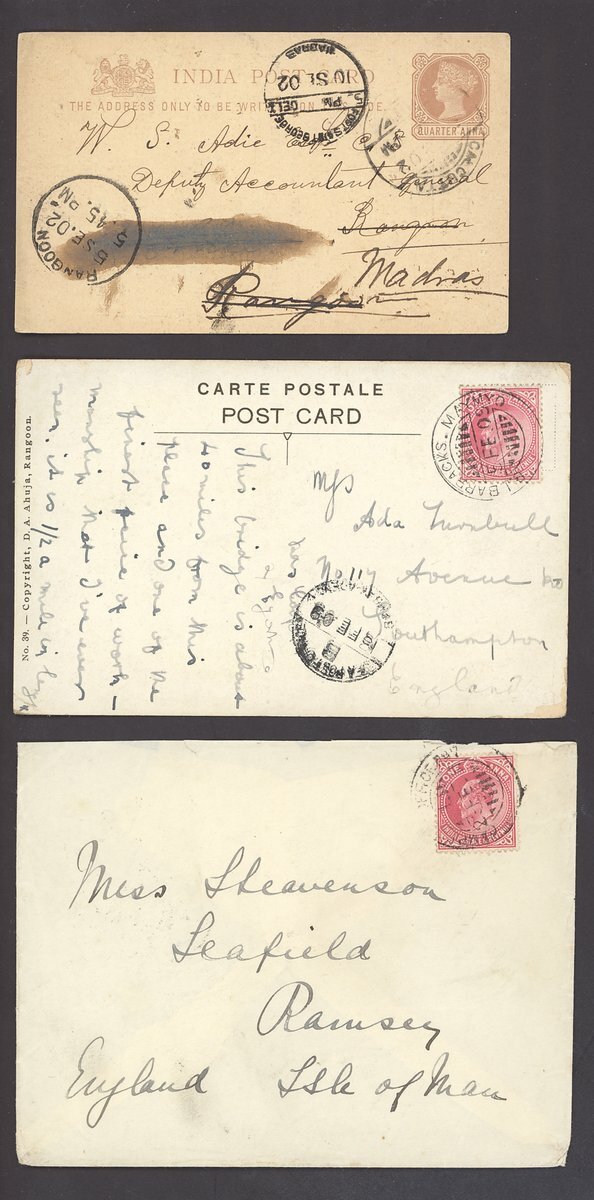 INDIA POST CARD
THE ADDRESS ONLY TO BE WRITTEN ON THIS SIDE.
QUARTER ANNA
FORT SAINT GEORGE
MADRAS
10 SE 02
PM
DEL
CALCUTTA
W. S. Adie Esqr
Deputy Accountant General
Rangoon
Rangoon
Madras
RANGOON
5 SE. 02
.45. PM
CARTE POSTALE
POST CARD
No. 39. — Copyright, D. A. Ahuja, Rangoon.
This bridge is about
40 miles from this
place and one of the
finest piece of work-
manship that I've ever
seen, it is 1/2 a mile in
BARRACKS. MAYMYO
FE 09
Ada Turnbull
Avenue
Southampton
England
SEA POST OFFICE
B
FE
09
ONE ANNA
Miss Steavenson
Seafield
Ramsey
England Isle of Man